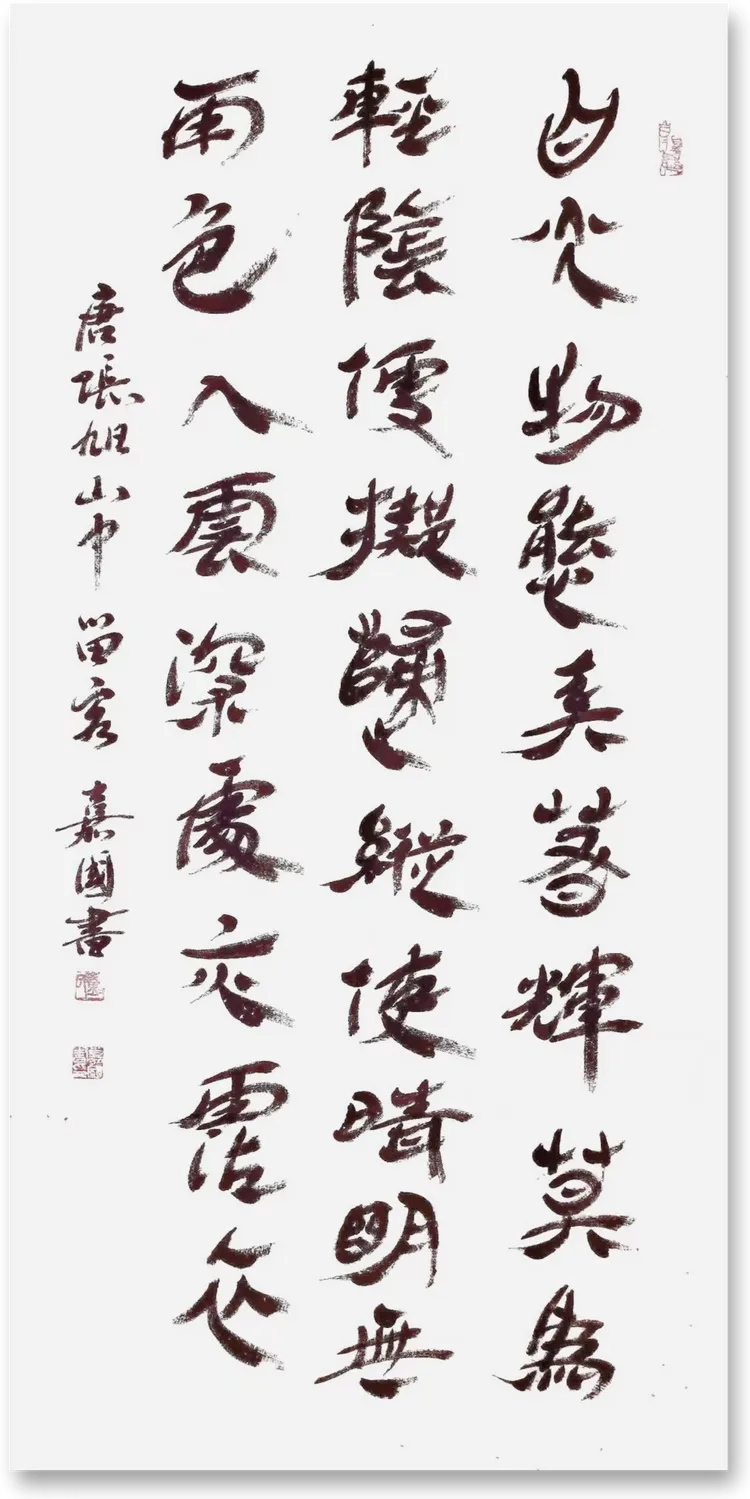 山光物態弄春輝莫為
輕陰便擬歸縱使晴明無
雨色入雲深處亦霑衣
唐張旭山中留客 嘉國書